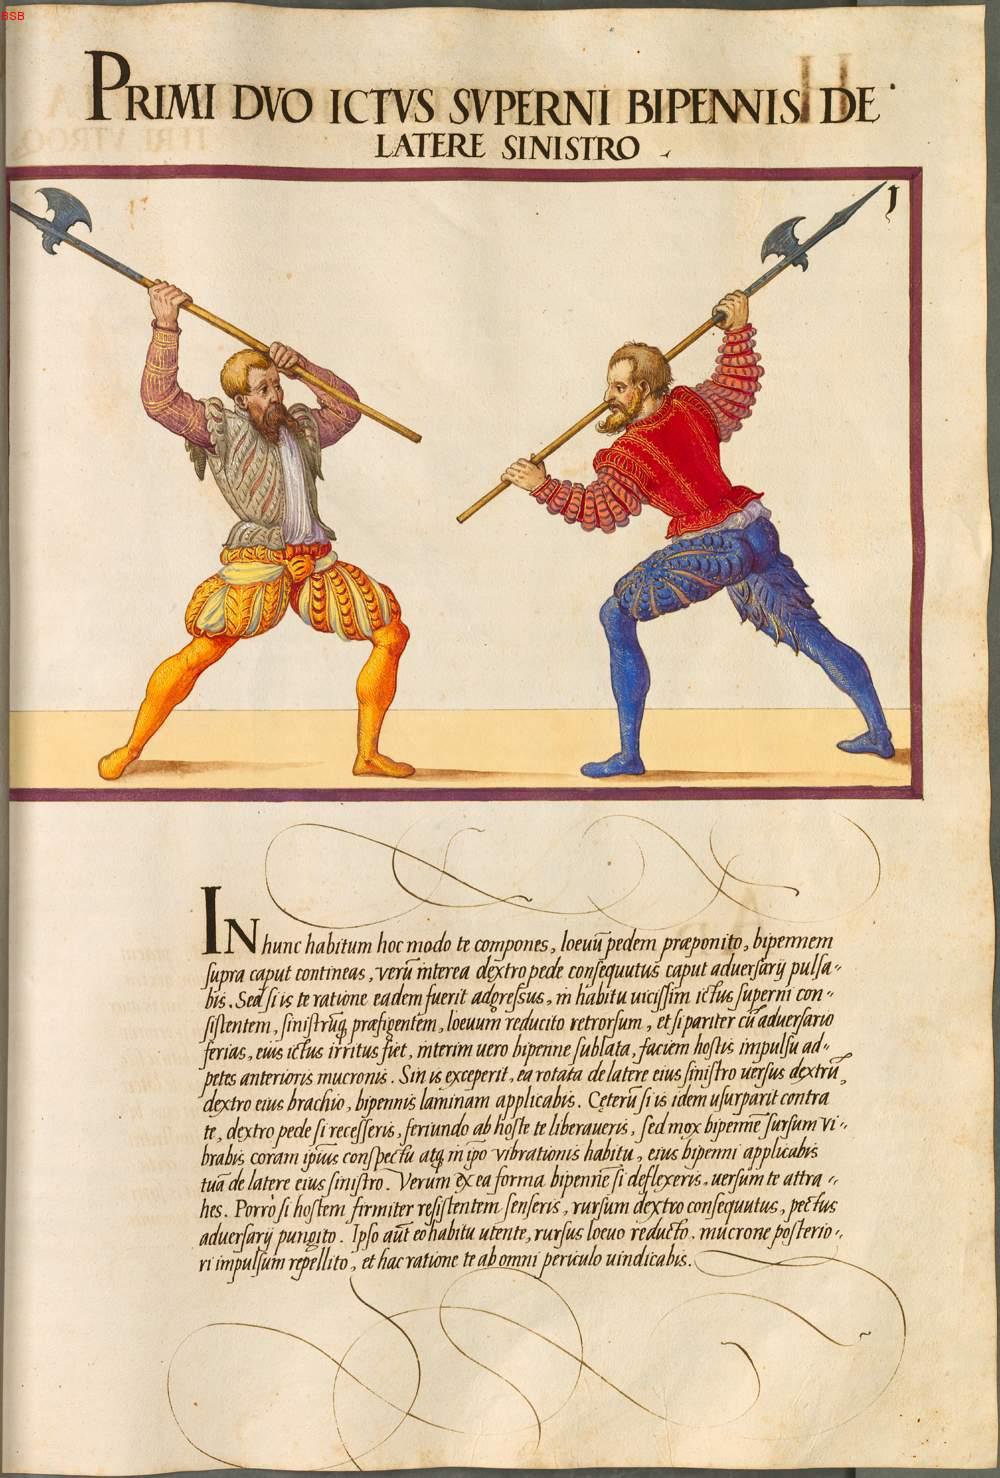 BSB
PRIMI DVO ICTVS SVPERNI BIPENNIS DE
LATERE SINISTRO
1
IN hunc habitum hoc modo te compones, loeuũ pedem præponito, bipennem
supra caput contineas, verũ interea dextro pede consequutus caput aduersarij pulsa-
bis. Sed si is te ratione eadem fuerit adgressus, in habitu uicissim ictus superni con-
sistentem, sinistrũq præfigentem, loeuum reducito retrorsum, et si pariter cũ aduersario
ferias, eius ictus irritus fiet, interim uero bipenne sublata, faciem hostis impulsu ad-
petes anterioris mucronis. Sin is exceperit, ea rotata de latere eius sinistro uersus dextrũ,
dextro eius brachio, bipennis laminam applicabis. Cęterũ si is idem usurparit contra
te, dextro pede si recesseris, feriundo ab hoste te liberaueris, sed mox bipennẽ sursum vi-
brabis coram ipsius conspectu atq in ip̃o vibrationis habitu, eius bipenni applicabis
tuã de latere eius sinistro. Verum ex ea forma bipennẽ si deflexeris, uersum te attra-
hes. Porrò si hostem firmiter resistentem senseris, rursum dextro consequutus, pectus
aduersarij pungito. Ipso aũt eo habitu utente, rursus loeuo reducto, mucrone posterio-
ri impulsum repellito, et hac ratione te ab omni periculo uindicabis.